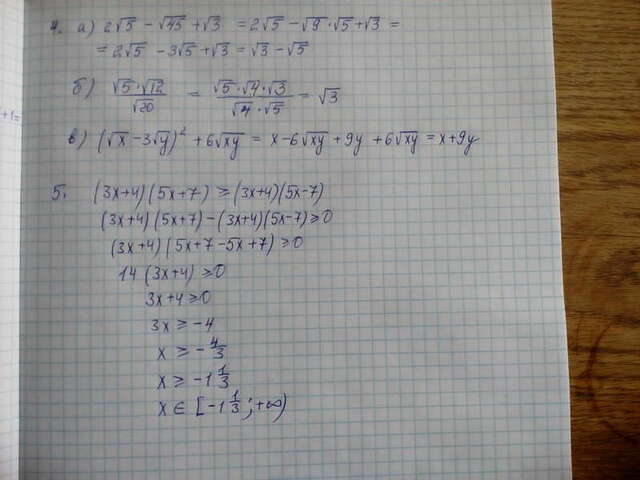 4. а) 2√5 − √45 + √3 = 2√5 − √9 · √5 + √3 =
= 2√5 − 3√5 + √3 = √3 − √5
б) (√5 · √12)/√20 = (√5 · √4 · √3)/(√4 · √5) = √3
в) (√x − 3√y)² + 6√xy = x − 6√xy + 9y + 6√xy = x + 9y
5. (3x+4)(5x+7) ≥ (3x+4)(5x−7)
(3x+4)(5x+7) − (3x+4)(5x−7) ≥ 0
(3x+4)(5x+7−5x+7) ≥ 0
14(3x+4) ≥ 0
3x+4 ≥ 0
3x ≥ −4
x ≥ −4/3
x ≥ −1 1/3
x ∈ [−1 1/3; +∞)